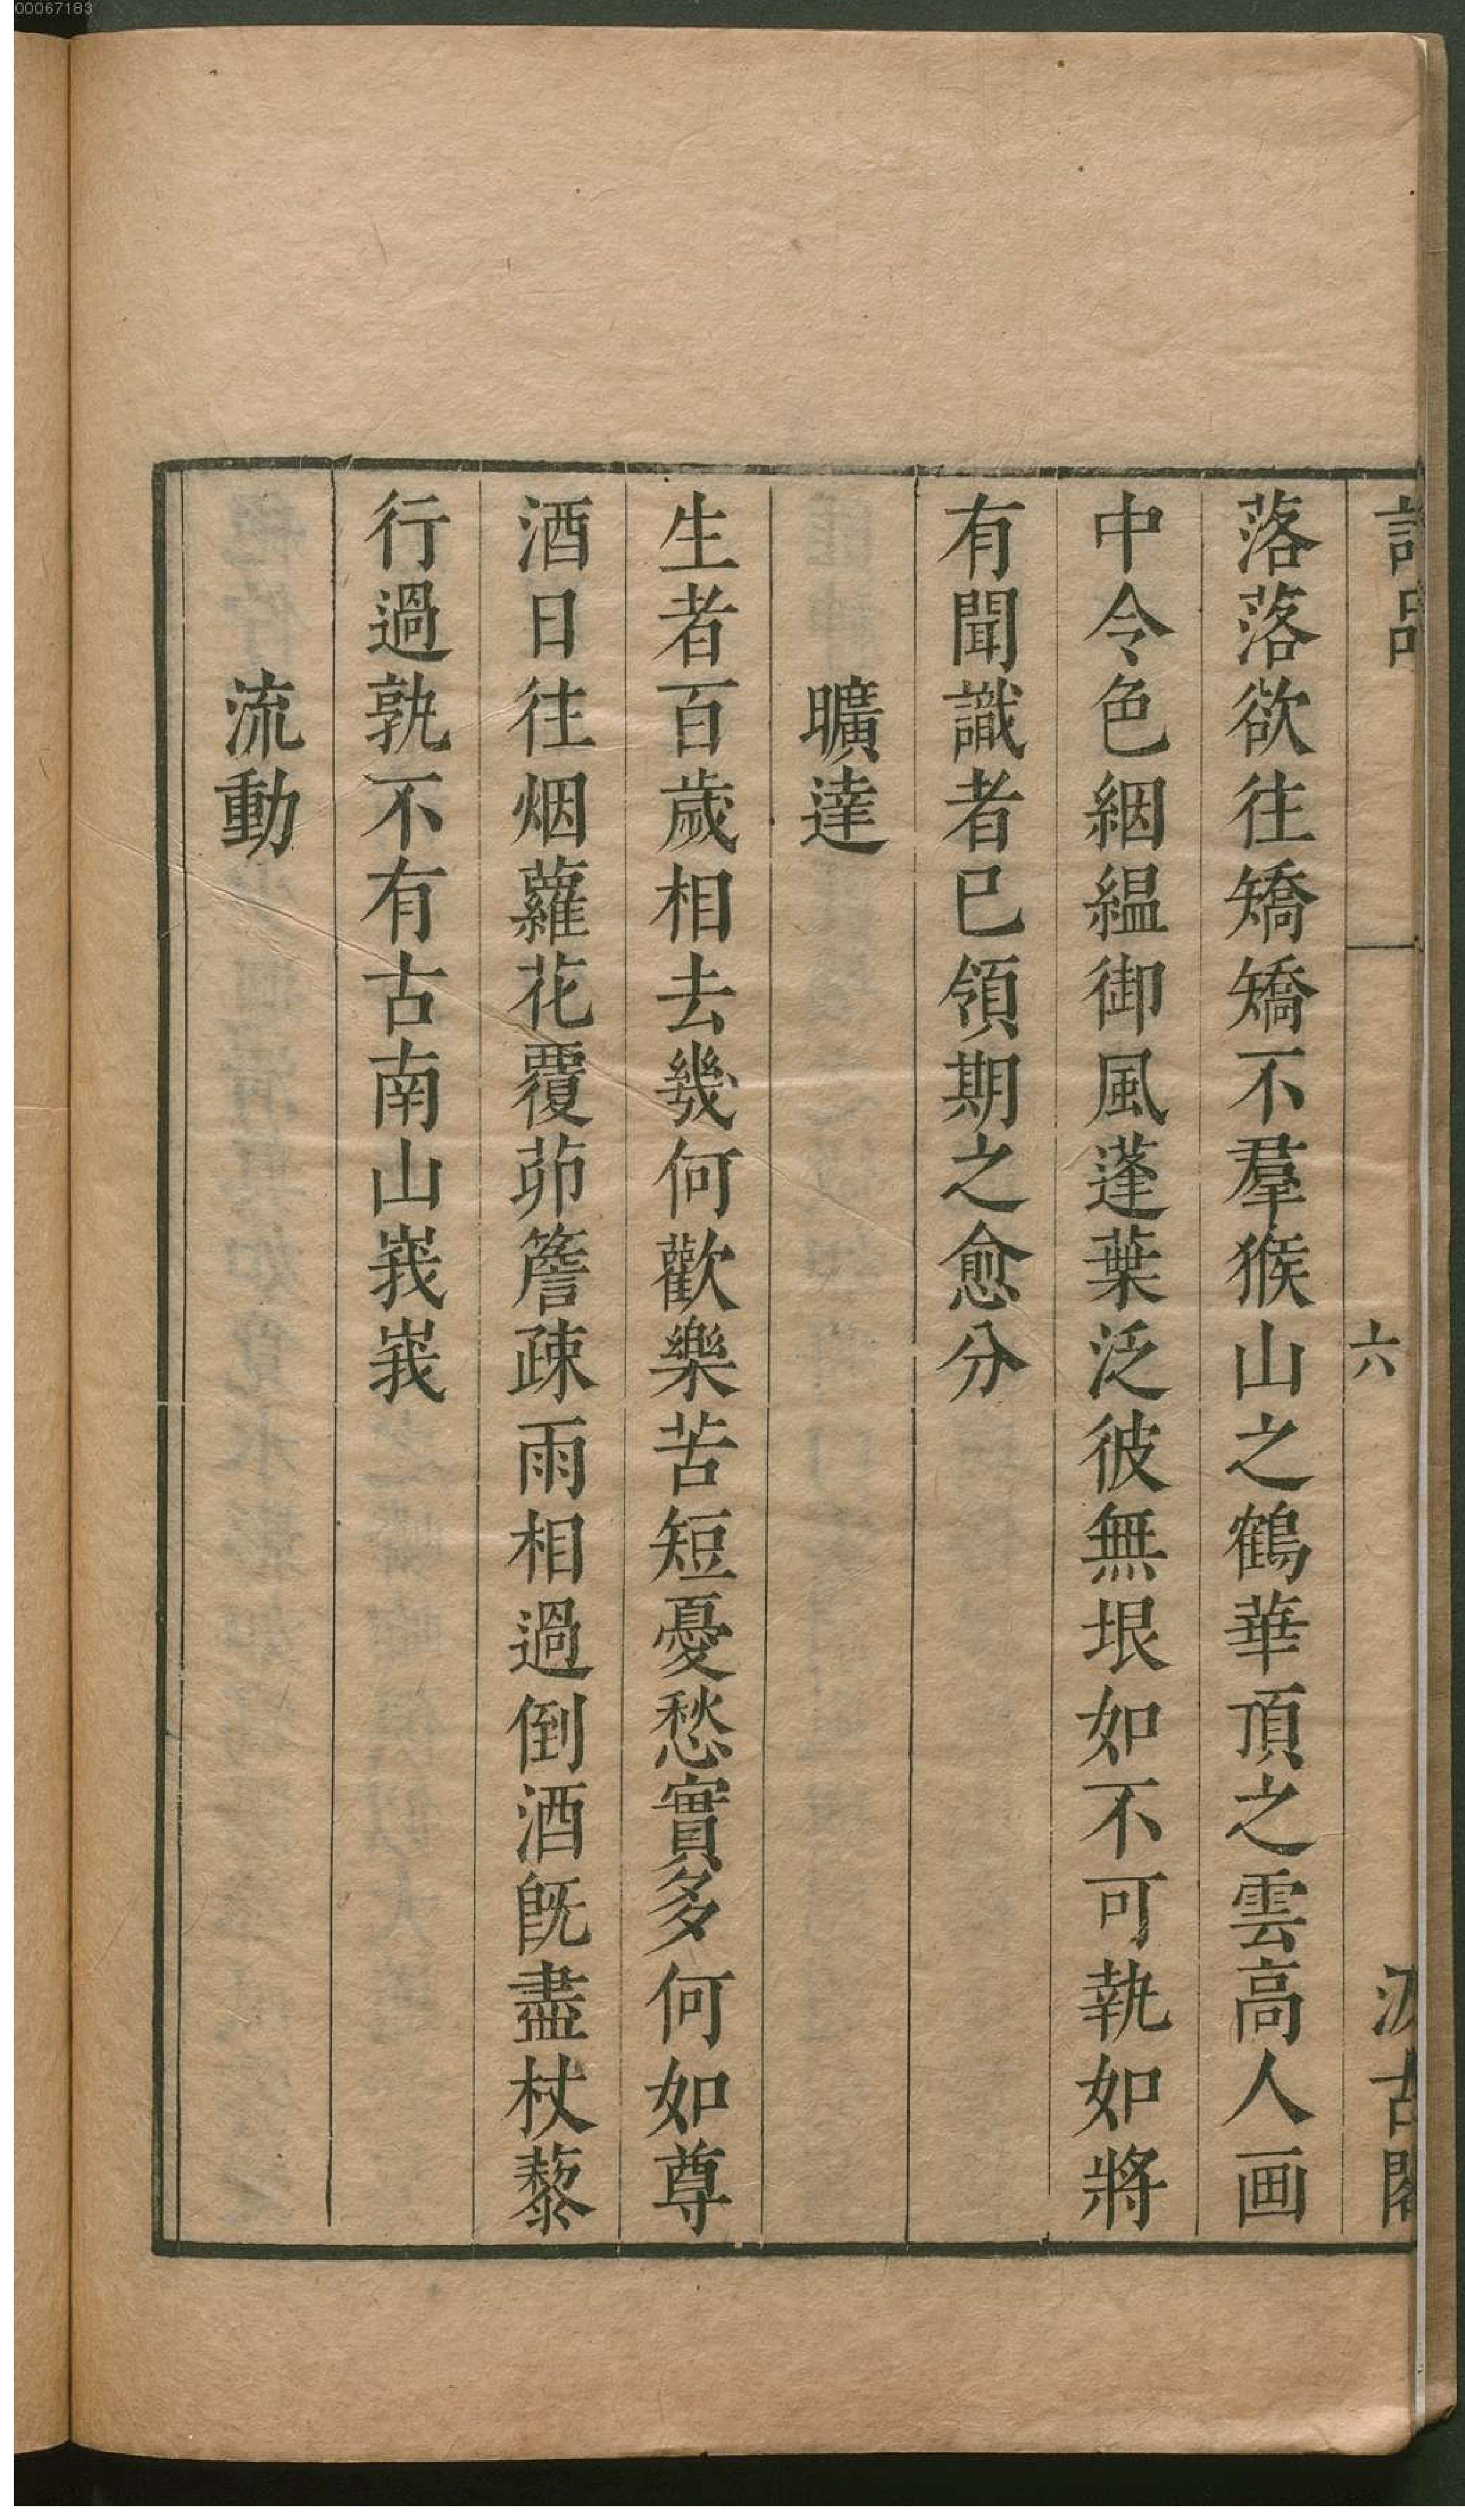 00067183
詩品
六
汲古閣
落落欲往矯矯不羣猴山之鶴華頂之雲高人画
中令色絪縕御風蓬葉泛彼無垠如不可執如將
有聞識者已領期之愈分
曠達
生者百歲相去幾何歡樂苦短憂愁實多何如尊
酒日往烟蘿花覆茆簷疎雨相過倒酒旣盡杖藜
行過孰不有古南山峩峩
流動